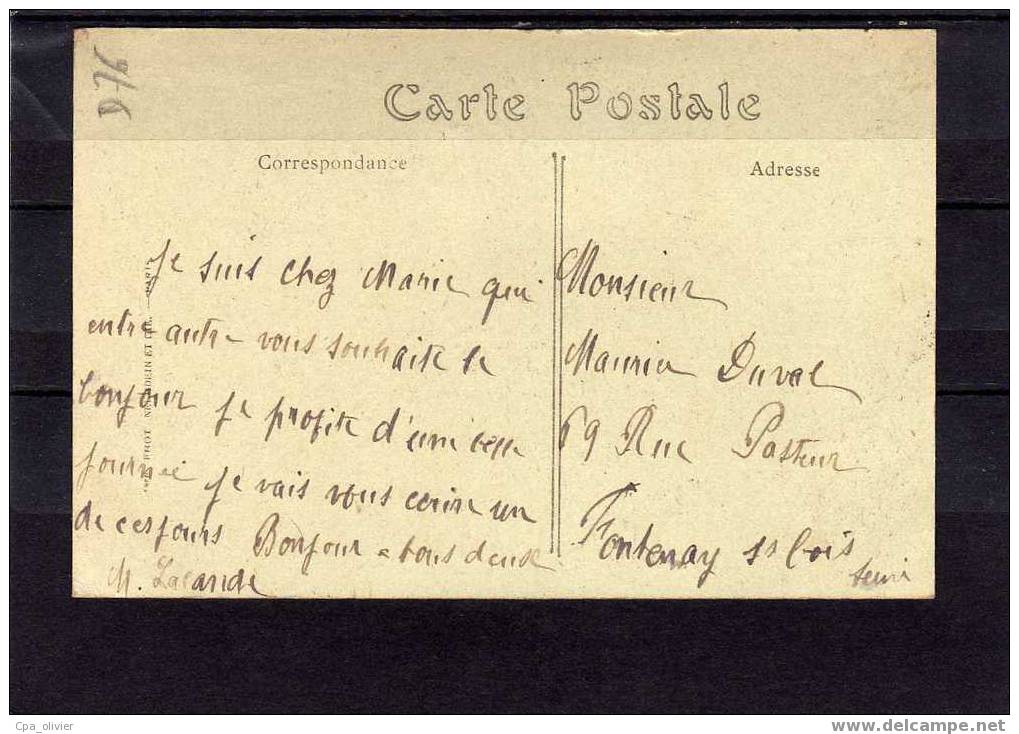 976
Carte Postale
Correspondance
Adresse
Je suis chez Marie qui
entre autre vous souhaite le
bonjour je profite d'une belle
journée je vais vous ecrire un
de ces jours Bonjour a tous deux
M. Lalande
Monsieur
Maurice Duval
69 Rue Pasteur
Fontenay ss bois
Seine
PHOT NEURDEIN ET CIE. PARIS
Cpa_olivier
http://www.delcampe.net